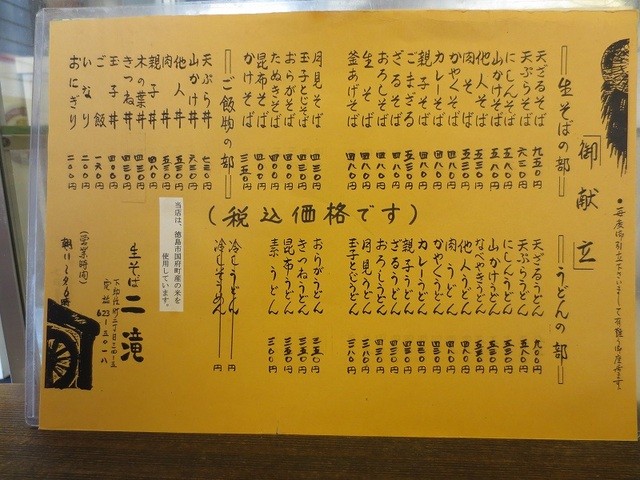 ●毎度御引立下さいまして有難う御座居ます。
「御献立」
生そばの部
天ざるそば 九五〇円
天ぷらそば 六三〇円
にしんそば 五八〇円
山かけそば 五八〇円
他人そば 五五〇円
肉そば 五三〇円
かやくそば 四八〇円
カレーそば 四八〇円
親子そば 四八〇円
ごまざる 五五〇円
ざるそば
おろしそば 四八〇円
生そば 四八〇円
釜あげそば 四八〇円
月見そば 四三〇円
玉子とじそば 四三〇円
おらがそば 四〇〇円
たぬきそば 四〇〇円
昆布そば 四〇〇円
かけそば 三五〇円
ご飯物の部
天ぷら丼 七三〇円
山かけ丼 六三〇円
他人丼 五五〇円
肉丼 五三〇円
親子丼 四八〇円
木の葉丼 四三〇円
きつね丼 四三〇円
玉子丼 四三〇円
ご飯 一六〇円
いなり 二〇〇円
おにぎり 二〇〇円
(税込価格です)
うどんの部
天ざるうどん 九〇〇円
天ぷらうどん 五八〇円
にしんうどん 五三〇円
山かけうどん 五三〇円
なべやきうどん 五五〇円
他人うどん
肉うどん 四八〇円
かやくうどん 四三〇円
カレーうどん 四三〇円
親子うどん 四三〇円
ざるうどん
おろしうどん 四三〇円
月見うどん 三八〇円
玉子うどん 三八〇円
おらがうどん 三五〇円
きつねうどん 三五〇円
昆布うどん 三五〇円
素うどん 三〇〇円
冷しうどん 円
冷しそうめん 円
当店は、徳島市国府町産の米を
使用しています。
生そば 二滝
電話 623-3018
(営業時間)